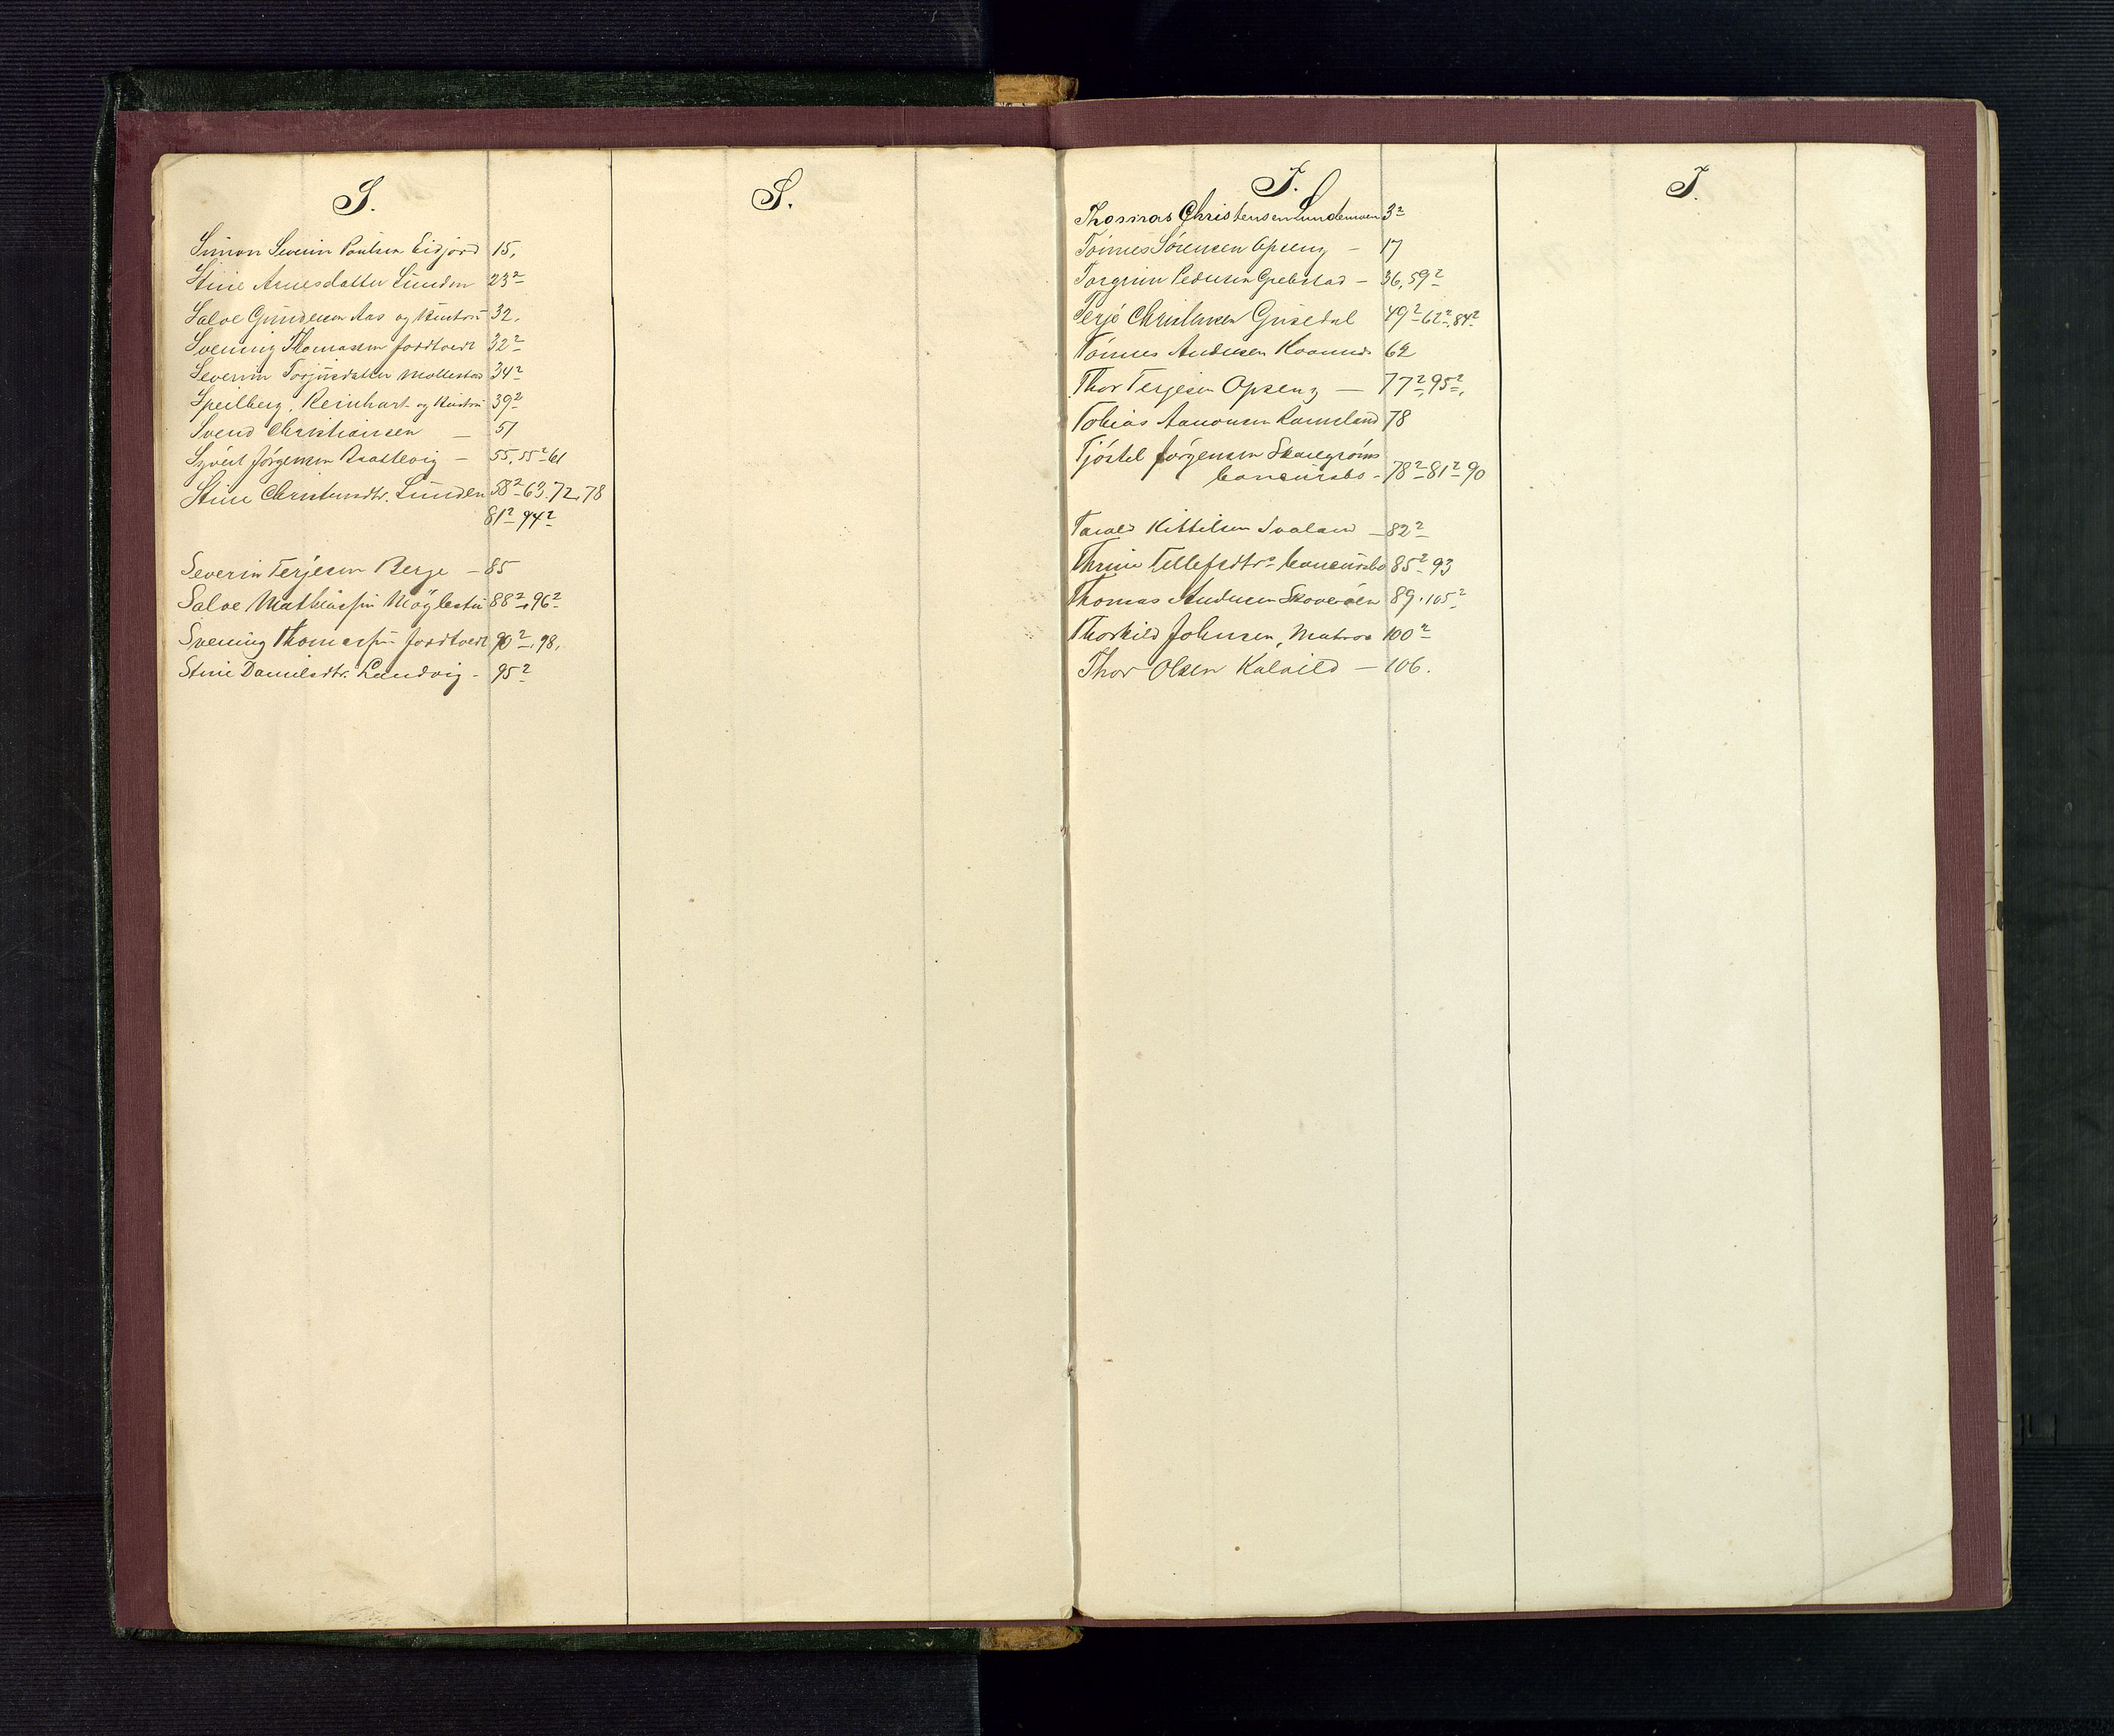 S.
Simon Severin Poulsen Eidjord 15,
Stine Arnesdatter Lunden 23²
Salve Gundersen Aas og Hustru 32,
Svennig Thomassen Jordtvedt 32²
Severin Torjusdatter Mollestad 34²
Speilberg, Reinhart og Hustru 39²
Svend Christiansen — 51
Syvert Jørgensen Brattevig — 55, 55² 61
Stine Christensdtr. Lunden 58² 63. 72, 78
81² 94²
Severin Terjesen Berge — 85
Salve Mathiassen Møglestu 88², 96²
Svennig Thomassen Jordtvedt 90², 98,
Stine Danielsdtr. Landvig - 95²
S.
T.
Thomas Christensen Lundemoen 3²
Tönnes Sörensen Opseng — 17
Torgrim Pedersen Grebstad — 36, 59²
Terje Christensen Grisedal 49² 62², 84²
Tönnes Andersen 62
Thor Terjesen Opseng — 77², 95²,
Tobias Aanonsen Rameland 78
Tjöstel Jörgensen Skaregröms
Concursbo - 78² 81² 90
Tarald Kittelsen Svaland — 82²
Thrine Tellefsdtrs Concursbo 85² 93
Thomas Andersen Skoveröen 89. 105²
Thorkild Johnsen, Matros 100²
Thor Olsen Kalvild — 106.
T.